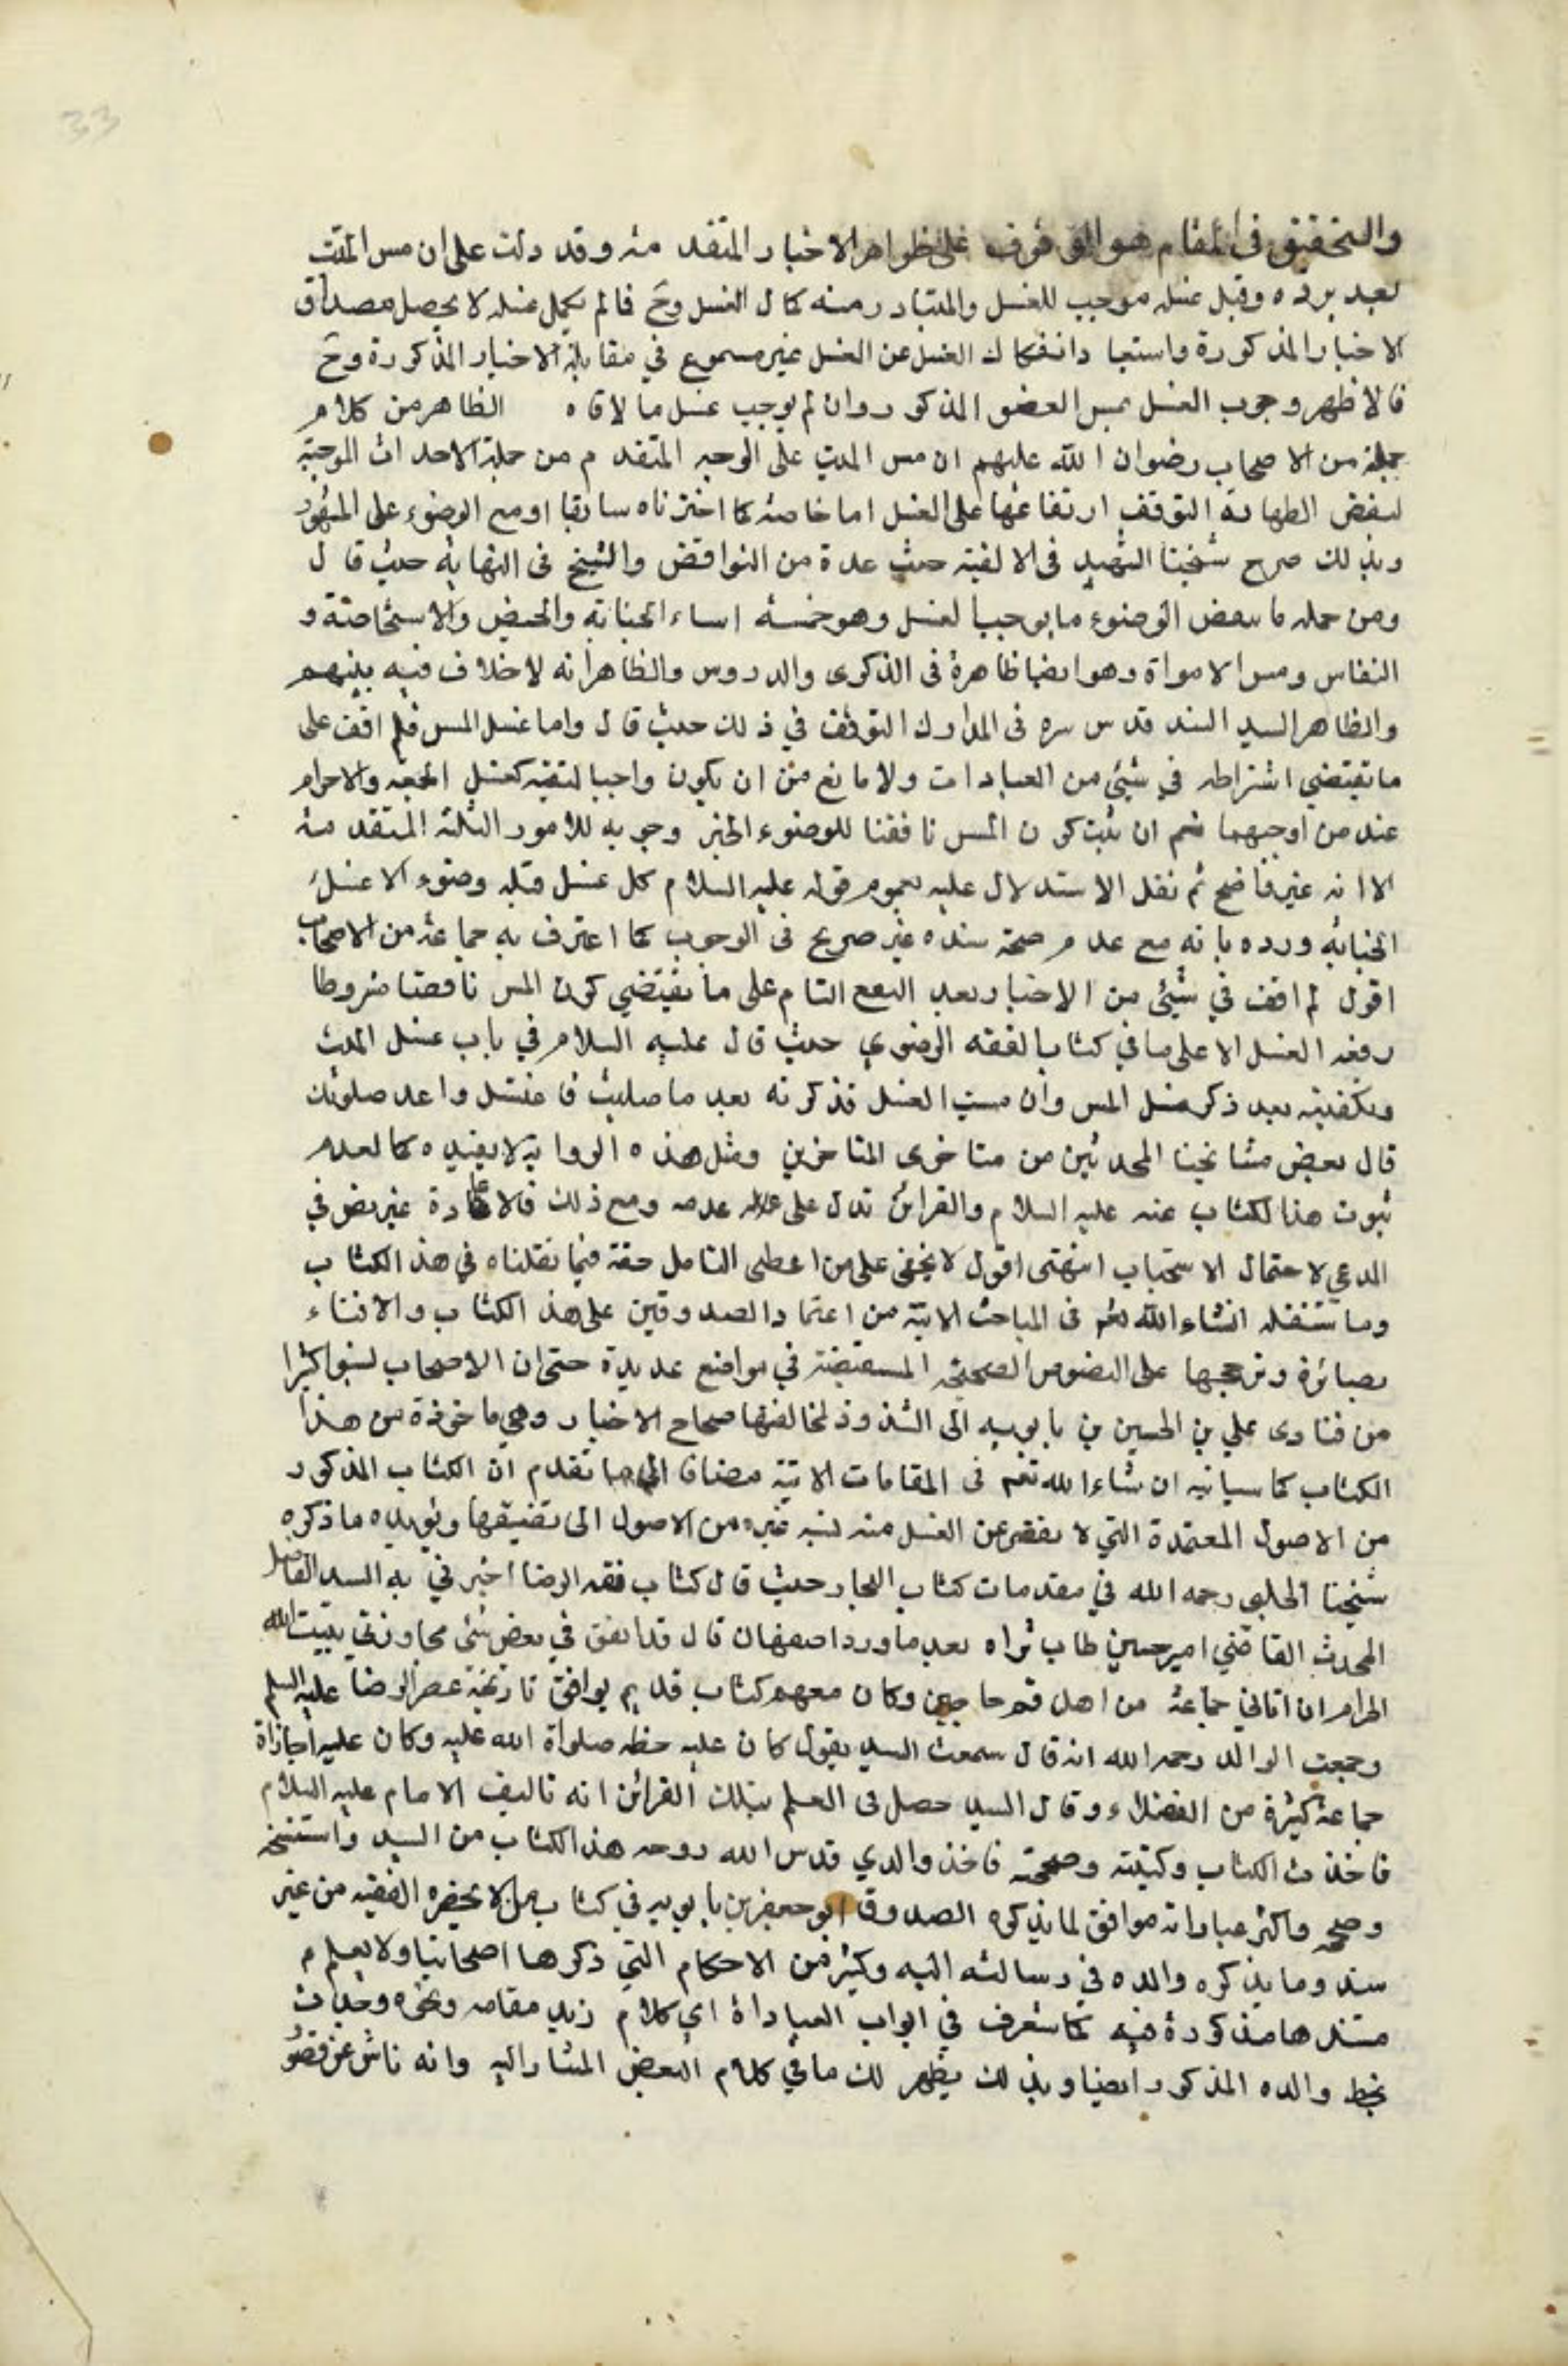 33
والتحقيق في المقام هو الوقوف على ظواهر الاخبار المتقدمه وقد دلت على ان مس الميت
بعد برده وقبل غسله موجب للغسل والمتبادر منه كمال الغسل وح فما لم يكمل غسله لا يحصل مصداق
الاخبار المذكورة واستبعاد انفكاك الغسل عن الغسل غير مسموع في مقابلة الاخبار المذكورة وح
فالاظهر وجوب الغسل بمس العضو المذكور وان لم يوجب غسل ما لاقاه الظاهر من كلام
جملة من الاصحاب رضوان الله عليهم ان مس الميت على الوجه المتقدم من جملة الاحداث الموجبة
لنقض الطهارة التوقف ارتفاعها على الغسل اما خاصة كما اخترناه سابقا او مع الوضوء على المشهور
وبذلك صرح شيخنا الشهيد في الالفيه حيث عده من النواقض والشيخ في النهايه حيث قال
ومن جمله ما ينقض الوضوء ما يوجب الغسل وهو خمسه اشياء الجنابه والحيض والاستحاضة و
النفاس ومس الامواة وهو ايضا ظاهرة في الذكرى والدروس والظاهر انه لا خلاف فيه بينهم
والظاهر السيد السند قدس سره في المدارك التوقف في ذلك حيث قال واما غسل المس فلم اقف على
ما تقتضي اشتراطه في شيئ من العبادات ولا مانع من ان يكون واجبا لنفسه كغسل الجمعه والاحرام
عند من اوجبهما نعم ان ثبت كون المس ناقضا للوضوء اتجه وجوبه للامور الثلثه المتقدمه
الا انه غير واضح ثم نقل الاستدلال عليه بعموم قوله عليه السلام كل غسل قبله وضوء الا غسل
الجنابه ورده بانه مع عدم صحة سنده غير صريح في الوجوب كما اعترف به جماعة من الاصحاب
اقول لم اقف في شيئ من الاخبار بعد التتبع التام على ما يقتضي كون المس ناقضا مشروطا
رفعه الغسل الا على ما في كتاب الفقه الرضوي حيث قال عليه السلام في باب غسل الميت
وتكفينه بعد ذكر غسل المس وان نسيت الغسل فذكرته بعد ما صليت فاغتسل واعد صلوتك
قال بعض مشايخنا المحدثين من متاخرى المتاخرين ومثل هذه الرواية لا يفيده كما لعدم
ثبوت هذا لكتاب عنه عليه السلام والقرائن تدل على عدمه ومع ذلك فالاعادة غير نص في
المدعي لاحتمال الاستحباب انتهى اقول لا يخفى على من اعطى التامل حقه فيما نقلناه في هذ الكتاب
وما سننقله انشاء الله تعم في المباحث الاتية من اعتماد الصدوقين على هذ الكتاب والافتاء
بعبائره وترجيحها على النصوص الصحيحه المستفيضة في مواضع عديدة حتى ان الاصحاب نسبوا كثيرا
من فتاوى علي بن الحسين بن بابويه الى الشذوذ لمخالفتها صحاح الاخبار وهي ماخوذة من هذا
الكتاب كما سيانيه ان شاء الله تعم في المقامات الاتية مضافا الى ما تقدم ان الكتاب المذكور
من الاصول المعتمدة التي لا يقصر عن الغسل منه لنسبه غيره من الاصول الى تصنيفها ويؤيده ما ذكره
شيخنا المجلسي رحمه الله في مقدمات كتاب البحار حيث قال كتاب فقه الرضا اخبرني به السيد الفاضل
المحدث القاضي امير حسين طاب ثراه بعد ما ورد اصفهان قال قد اتفق في بعض سني مجاورتي ببيت الله
الحرام ان اتاني جماعة من اهل قم حاجين وكان معهم كتاب قديم يوافق تاريخه عصر الرضا عليه السلم
وسمعت الوالد رحمه الله انه قال سمعت السيد يقول كان عليه خطه صلواة الله عليه وكان عليه اجازاة
جماعة كثيرة من الفضلاء وقال السيد حصل لى العلم بتلك القرائن انه تاليف الامام عليه السلام
فاخذت الكتاب وكتبته وصححته فاخذ والدي قدس الله روحه هذ الكتاب من السيد واستنسخه
وصححه واكثر عباراته موافق لما يذكره الصدوق ابو جعفر بن بابويه في كتاب من لا يحضره الفقيه من غير
سند وما يذكره والده في رسالته اليه وكثير من الاحكام التي ذكرها اصحابنا ولا يعلم م
مستندها مذكورة فيه كما ستعرف في ابواب العباداة اي كلام زيد مقامه ونحوه وجدت
بخط والده المذكور ايضا وبذلك يظهر لك ما في كلام البعض المشار اليه وانه ناش عن قصور